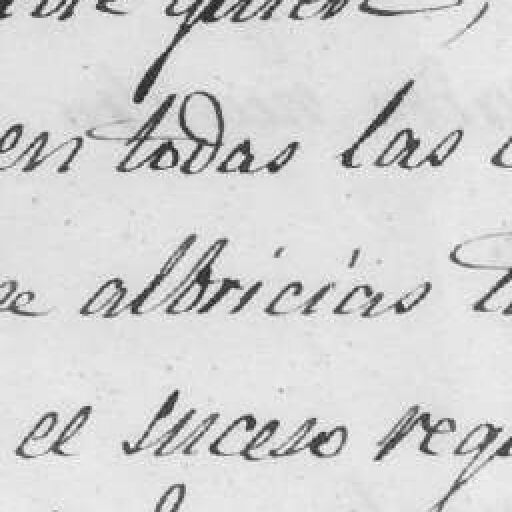 quien,
en todas las
albricias
el suceso